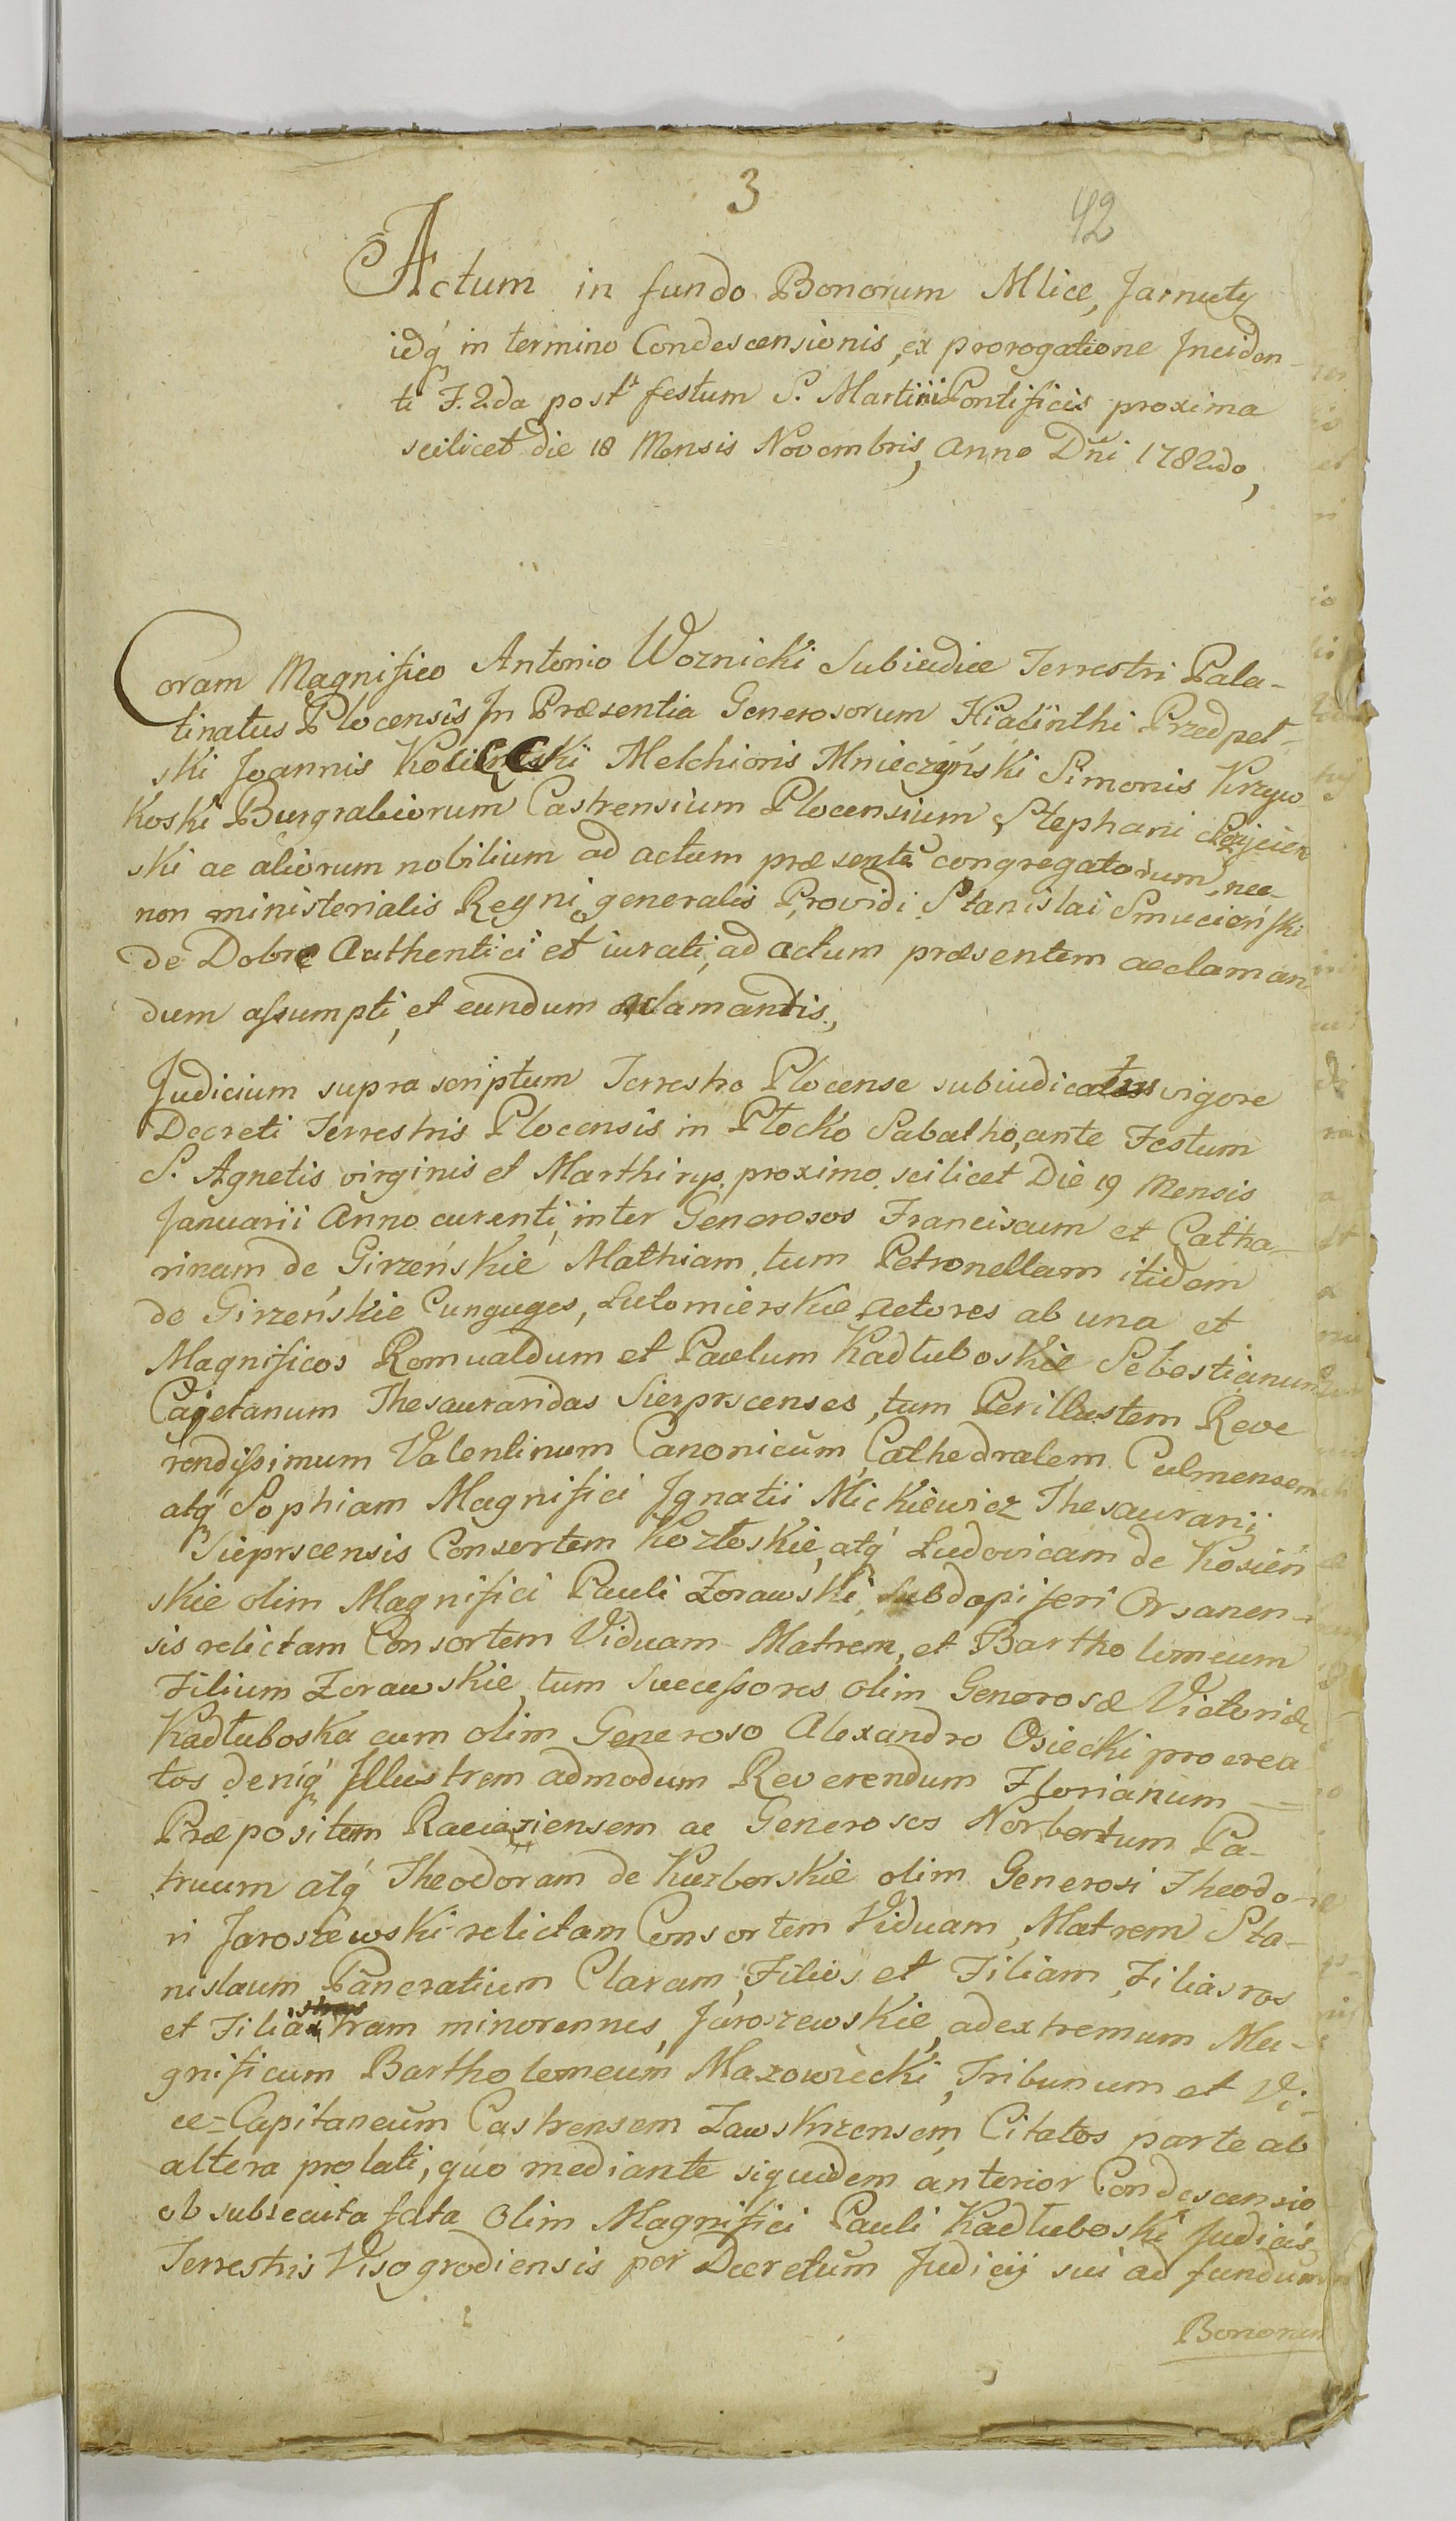 3
42
Actum in fundo Bonorum Mlice, Jarnuty
idq́ in termino Condescensionis, ex prorogatione Inciden-
ti F. 2da post festum S. Martini Pontificis proxima
scilicet die 18 Mensis Novembris, Anno Dñi 1782do,
Coram Magnifico Antonio Woznicki Subiudice Terrestri Pala-
tinatus Plocensis In Præsentia Generosorum Hiacinthi Przedpeł-
ski Joannis Melchioris Mnieczyński Simonis Krzyw
koski Burgrabiorum Castrensium Plocensium Stephani
ski ac aliorum nobilium ad actum præsentē congregatorum, nec
non ministerialis Regni generalis Providi Stanislai Smucieński
de Dobre Authentici et iurati, ad actum præsentem acclaman
dum assumpti, et eundum aclamantis,
Judicium supra scriptum Terrestre Plocense subiudicatus vigore
Decreti Terrestris Plocensis in Płocko Sabatho, ante Festum
S. Agnetis virginis et Marthirys. proximo. scilicet Die 19 Mensis
Januarii Anno curenti, inter Generosos Franciscum et Catha-
rinam de Girzeńskie Mathiam, tum Petronellam itidem
de Girzeńskie Cunguges, Lutomierskie Actores ab una et
Magnificos Romualdum et Paulum Kadłuboskie Sebestianum
Cajetanum Thesauraridas Sierprscenses, tum Perillustem Reve
rendissimum Valentinum Canonicum Cathedralem Culmensem
atq́ Sophiam Magnifici Ignatii Mickiewicz Thesaurarij
Sieprscensis Consortem Kozłoskie, atq́ Ludovicam de Kosień
skie olim Magnifici Pauli Zorawski, Subdapiferi Orsanen-
sis relictam Consortem Viduam Matrem, et Bartholomeum
Filium Zorawskie, tum Successores olim Generosæ Victoriæ
Kadłuboska cum olim Generoso Alexandro Osiecki procrea
tos deniq́ Illustrem admodum Reverendum Florianum
Præpositum Raciaziensem ac Generosos Norbertum Pa-
truum atq́ Theodoram de Kuzborskie olim Generosi Theodo-
ri Jaroszewski relictam Consortem Viduam, Matrem Sta-
nislaum Pancratium Claram, Filios et Filiam, Filiasros
et Filiastram minorennes, Jaroszewskie, adextremum Ma-
gnificum Bartholomeum Mazowiecki, Tribunum et Vi-
ce-Capitaneum Castrensem Zawskrzensem Citatos parte ab
altera prolati, quo mediante siquidem anterior Condescensio
ob subsecuta fata Olim Magnifici Pauli Kadłuboski Judicis
Terrestris Visogrodiensis per Decretum Judicij sui ad fundum
Bonorum